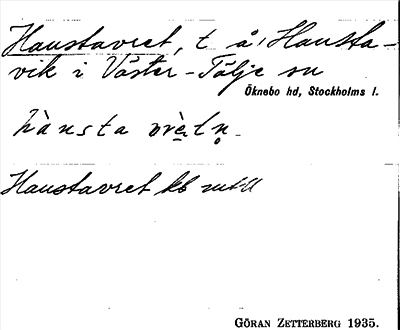 Hanstavret, t. å, Hansta-
vik i Väster-Tälje sn
Öknebo hd, Stockholms l.
hànsta vrè̱tn̥.
Hanstavret kb
GÖRAN ZETTERBERG 1935.